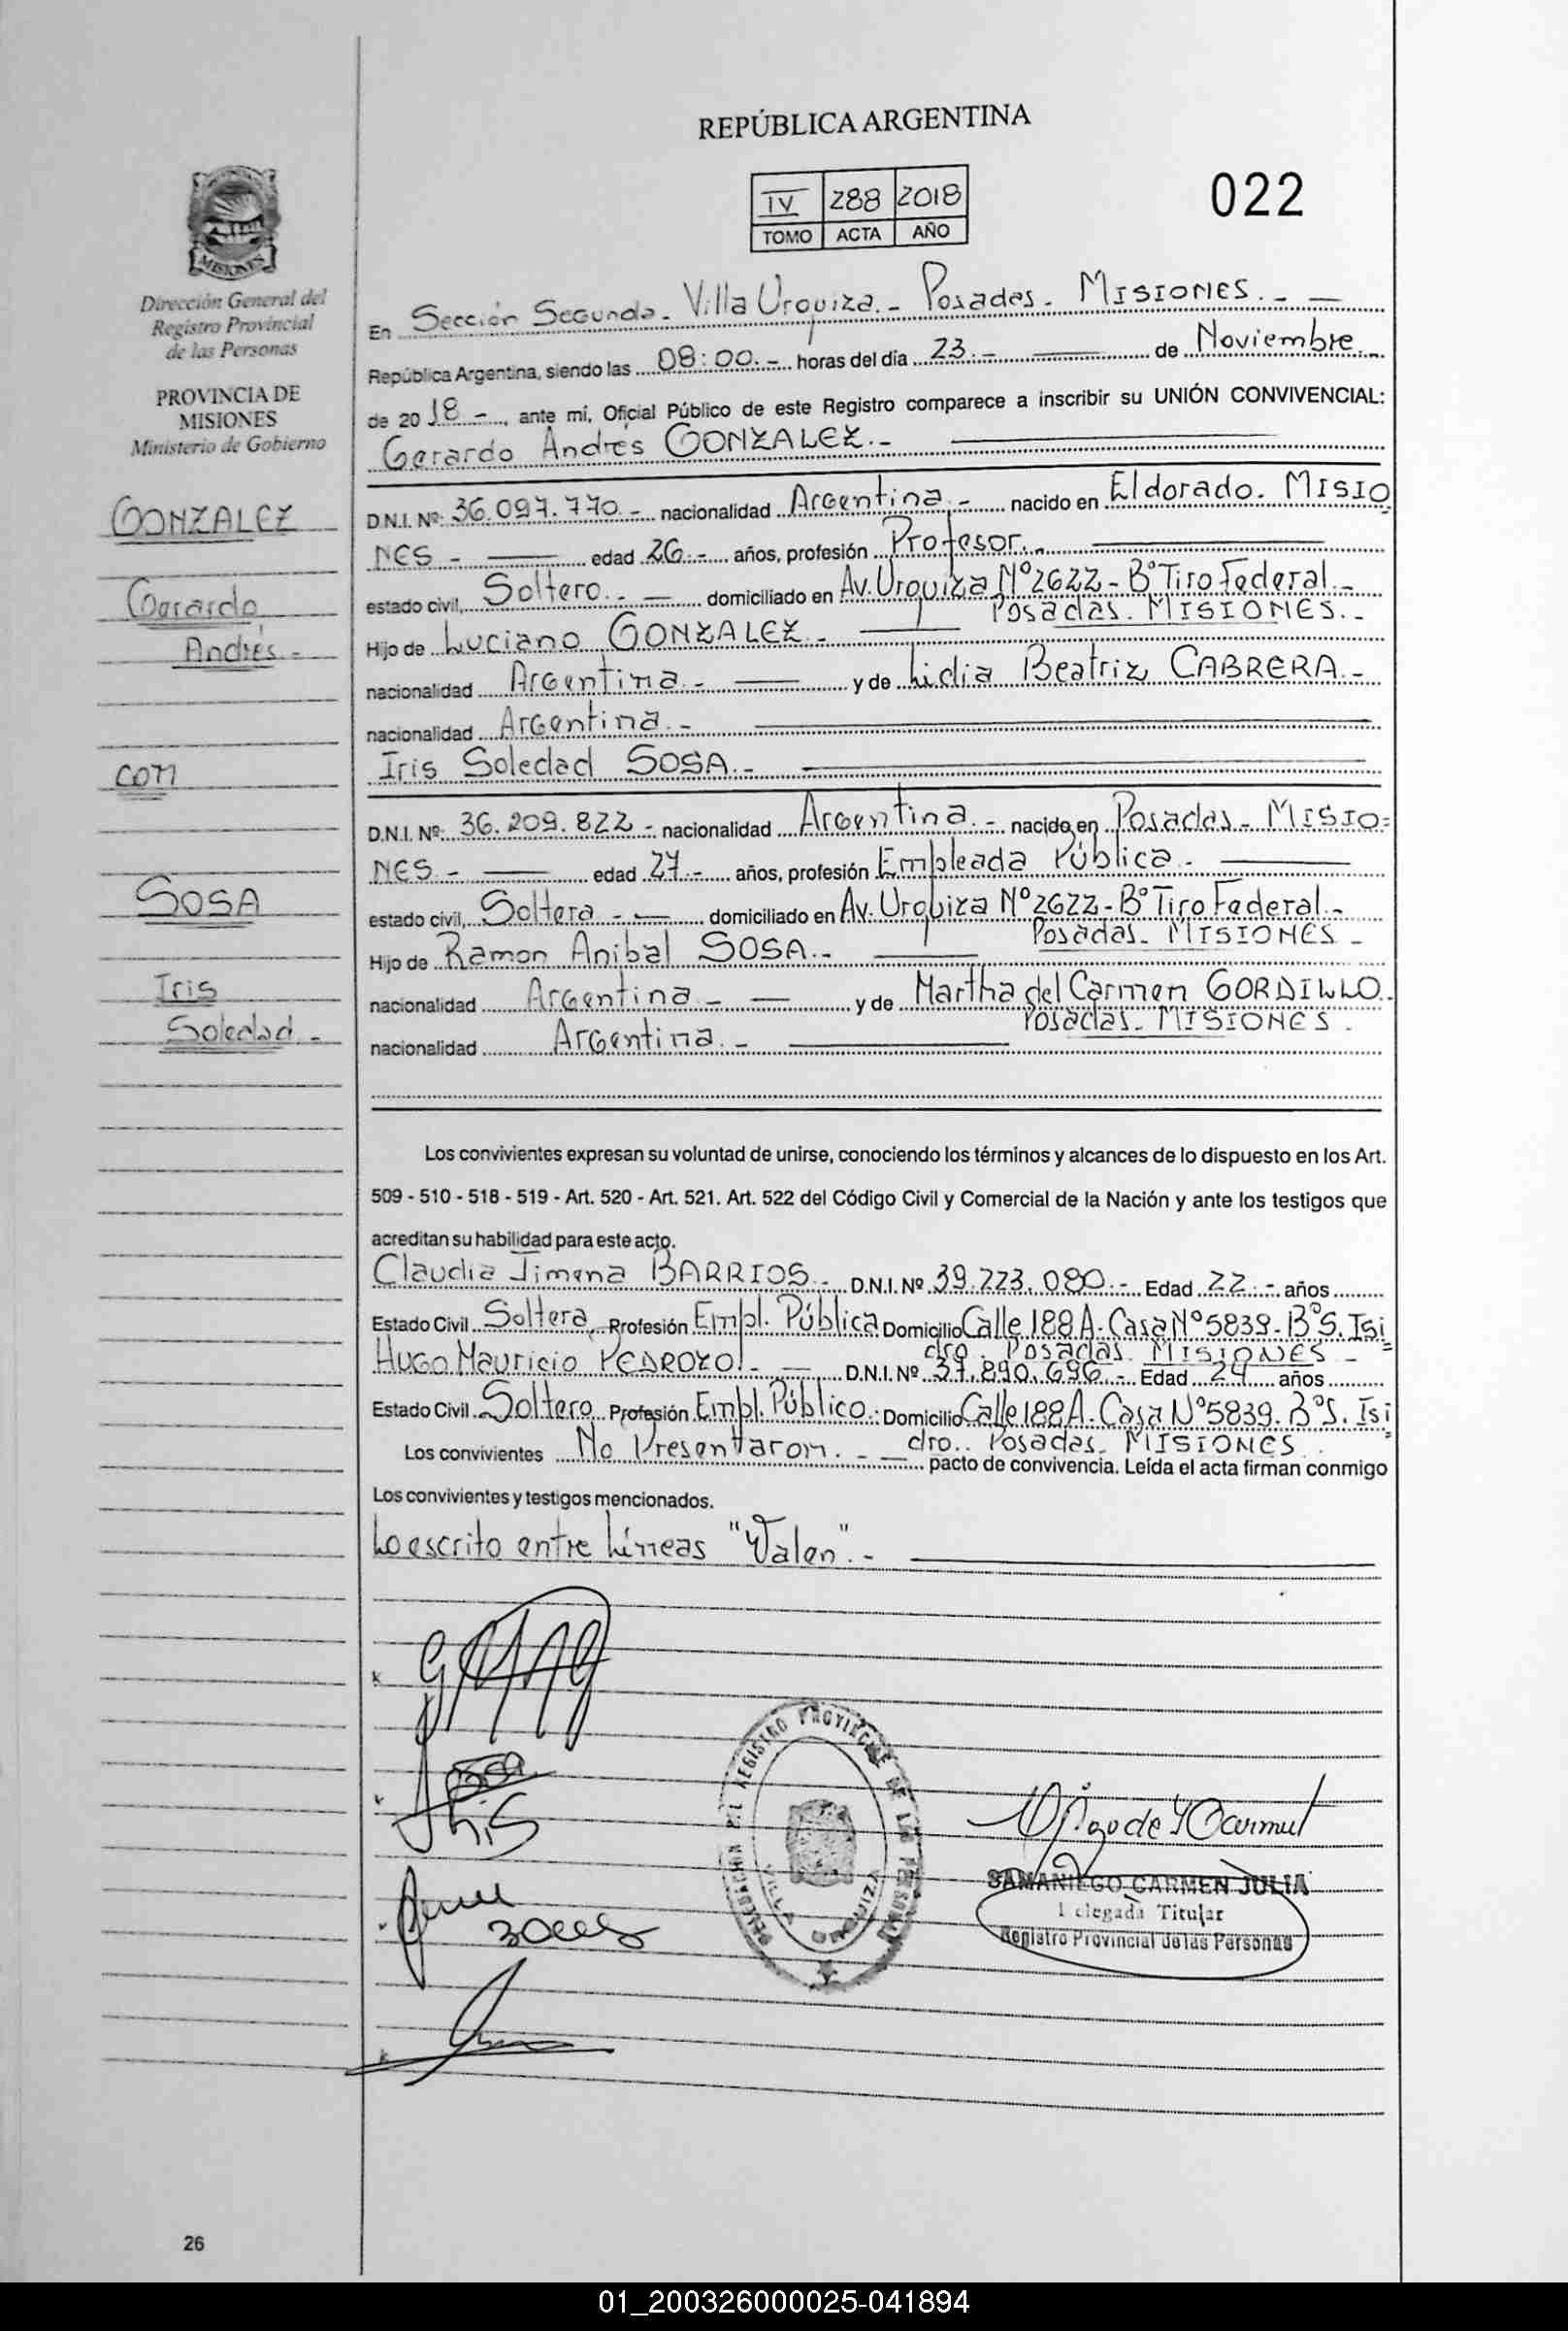 REPÚBLICA ARGENTINA
IV 288 2018
TOMO ACTA AÑO
022
MISIONES
Dirección General del
Registro Provincial
de las Personas
PROVINCIA DE
MISIONES
Ministerio de Gobierno
GONZALEZ
Gerardo
Andrés -
CON
SOSA
Iris
Soledad. -
En Sección Segunda - Villa Urquiza. - Posadas - MISIONES. - —
República Argentina, siendo las 08:00. - horas del día 23. - — de Noviembre. -
de 2018 -, ante mí, Oficial Público de este Registro comparece a inscribir su UNIÓN CONVIVENCIAL:
Gerardo Andrés GONZALEZ. -
D.N.I. Nº: 36.097.770. - nacionalidad Argentina. - nacido en Eldorado. MISIO
NES - — edad 26. - años, profesión Profesor. -
estado civil, Soltero. - — domiciliado en Av. Urquiza Nº 2622 - Bº Tiro Federal. -
Posadas. MISIONES. -
Hijo de Luciano GONZALEZ. -
nacionalidad Argentina. - — y de Lidia Beatriz CABRERA. -
nacionalidad Argentina. -
Iris Soledad SOSA. -
D.N.I. Nº: 36.209.822 - nacionalidad Argentina. - nacido en Posadas - MISIO=
NES - — edad 27. - años, profesión Empleada Pública. -
estado civil, Soltera - — domiciliado en Av. Urquiza Nº 2622 - Bº Tiro Federal. -
Posadas. MISIONES -
Hijo de Ramon Anibal SOSA. -
nacionalidad Argentina - — y de Martha del Carmen GORDILLO.
Posadas. MISIONES -
nacionalidad Argentina. -
Los convivientes expresan su voluntad de unirse, conociendo los términos y alcances de lo dispuesto en los Art.
509 - 510 - 518 - 519 - Art. 520 - Art. 521. Art. 522 del Código Civil y Comercial de la Nación y ante los testigos que
acreditan su habilidad para este acto.
Claudia Jimena BARRIOS. - D.N.I. Nº 39.223.080. - Edad 22. - años
Estado Civil Soltera Profesión Empl. Pública Domicilio Calle 188 A - Casa Nº 5839 - Bº S. Isi
dro. Posadas. MISIONES -
Hugo Mauricio PEDROZO. - — D.N.I. Nº 37.890.696. - Edad 24 años
Estado Civil Soltero Profesión Empl. Público. Domicilio Calle 188 A - Casa Nº 5839. Bº S. Isi
dro. Posadas. MISIONES
Los convivientes No Presentaron. - — pacto de convivencia. Leída el acta firman conmigo
Los convivientes y testigos mencionados.
Lo escrito entre Líneas "Valen". -
DELEGACION DEL REGISTRO PROVINCIAL DE LAS PERSONAS
VILLA URQUIZA
SAMANIEGO CARMEN JULIA
Delegada Titular
Registro Provincial de las Personas
26
01_200326000025-041894